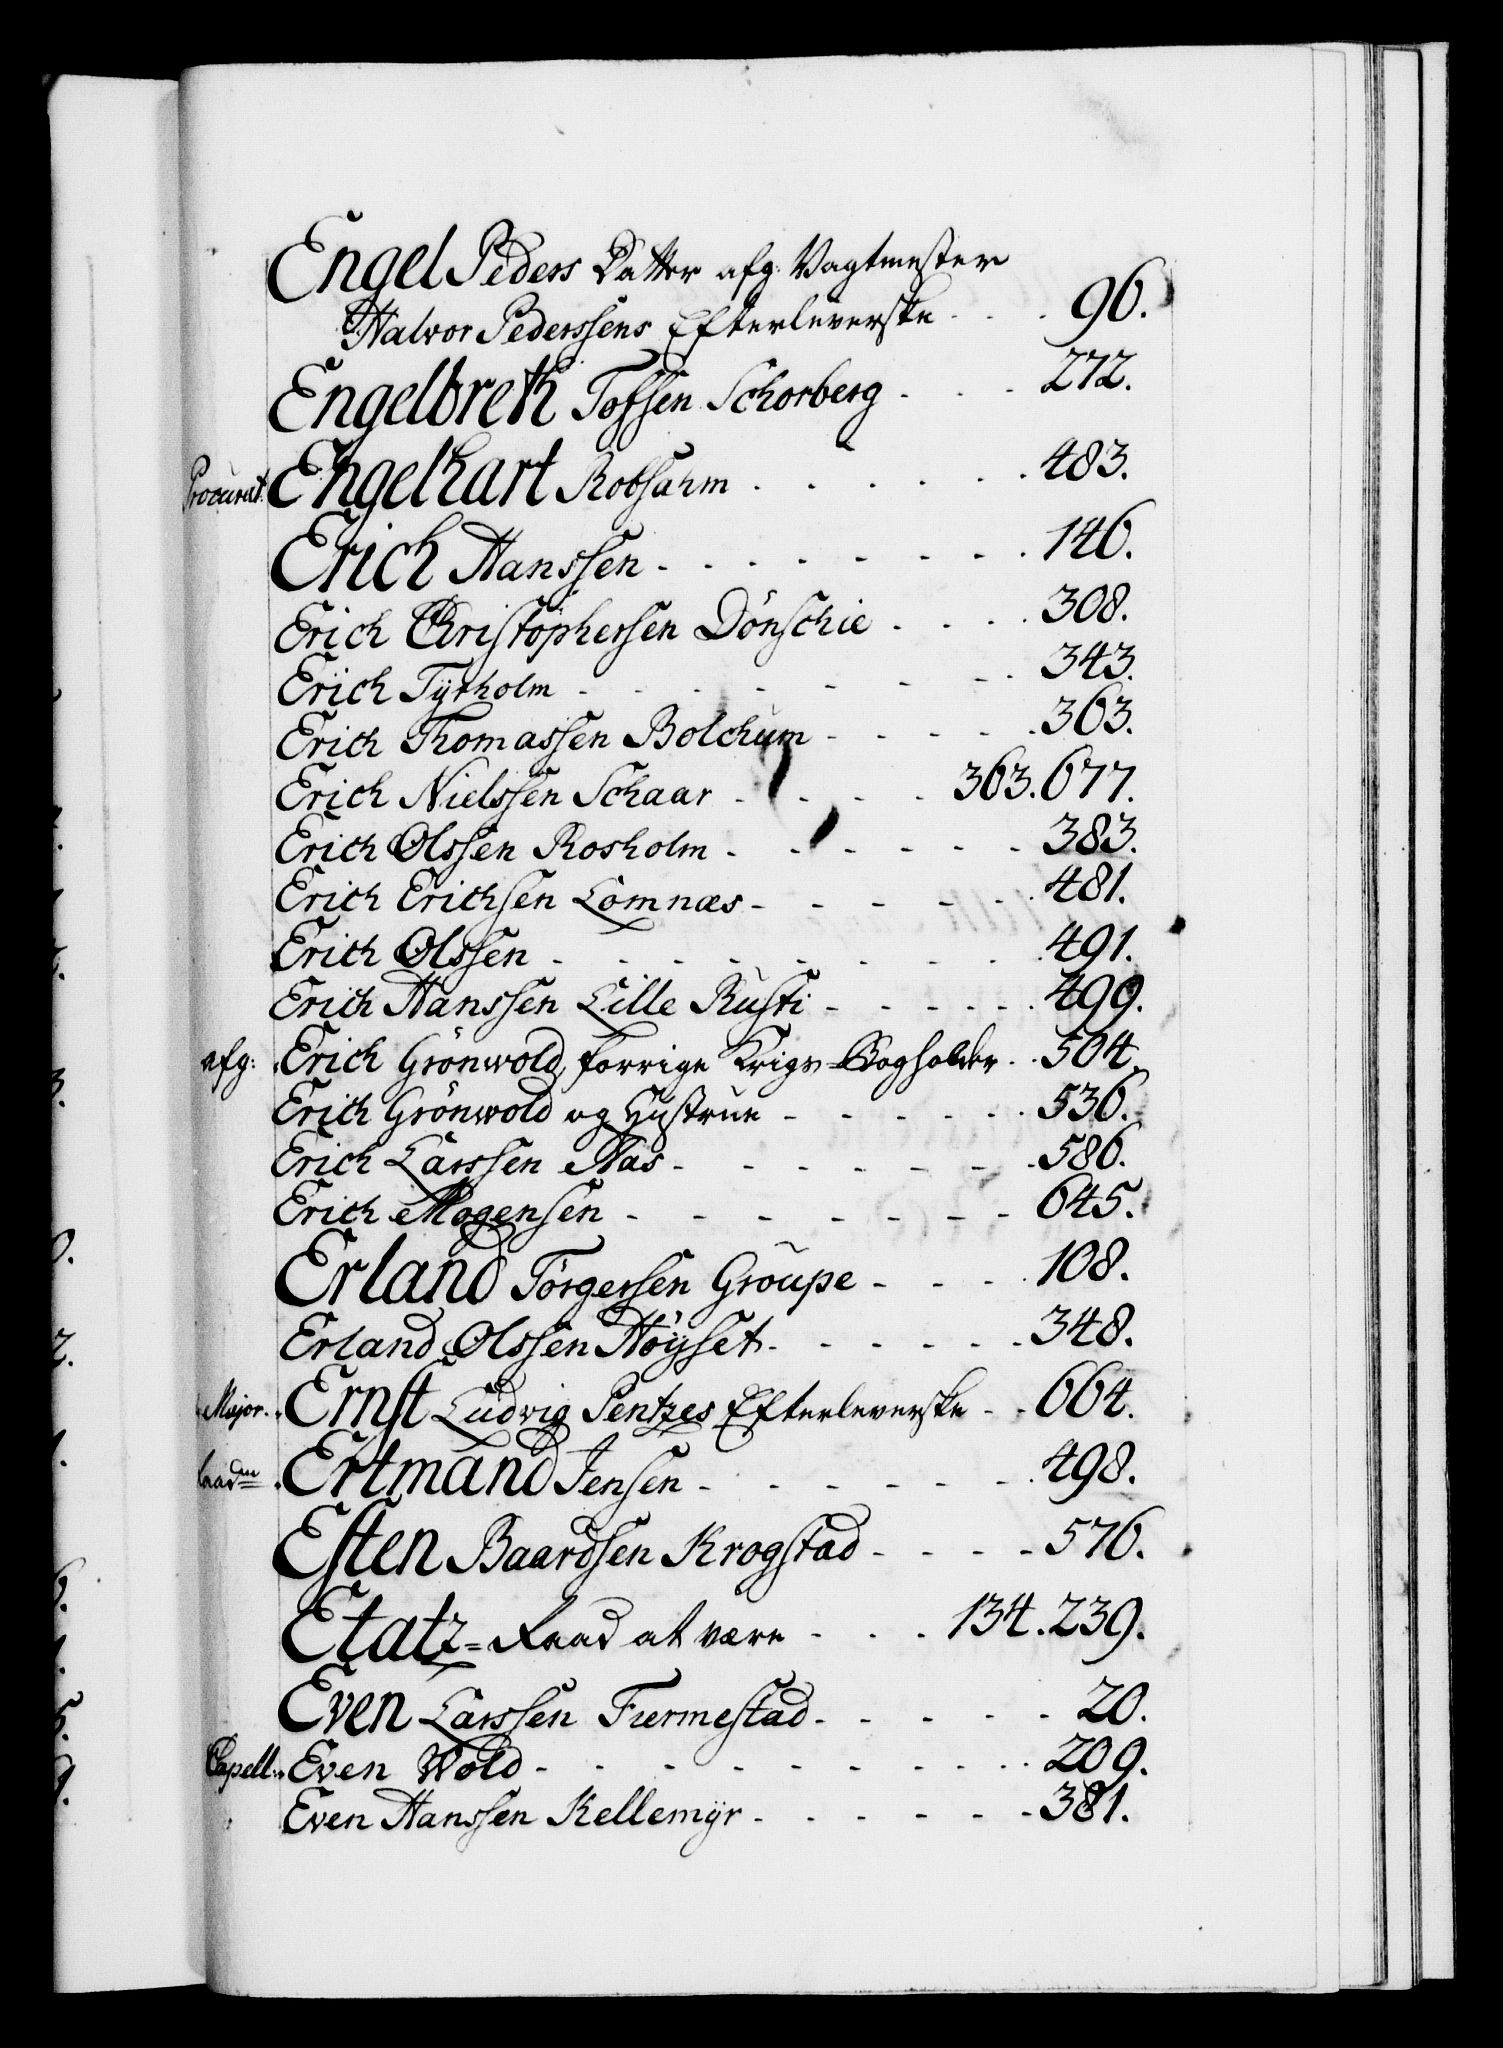 Engel Peders Datter afg: Vagtmester
Halvor Pederssens Efterleverske - - - 96.
Engelbreth Tofssen Schorberg - - - 272.
Procurat: Engelhart Robsahm - - - - - - 483.
Erich Hanssen - - - - - - - - 146.
Erich Christophersen Dönschie - - - - 308.
Erich Tyrholm - - - - - - - - 343.
Erich Thomassen Bolchum - - - - - 363.
Erich Nielssen Schaar - - - - 363. 677.
Erich Olssen Rosholm - - - - - - 383.
Erich Erichsen Lomnæs - - - - - - 481.
Erich Olssen - - - - - - - - - 491.
Erich Hanssen Lille Rusti - - - - - - 499.
afg: Erich Grönwold, forrige Krigs-Bogholder - 504.
Erich Grönwold og Hustrue - - - - - 536.
Erich Larssen Aas - - - - - - - 586.
Erich Mogensen - - - - - - - - 645.
Erland Törgersen Groupe - - - - 108.
Erland Olssen Höyset - - - - - - 348.
Major Ernst Ludvig Pentzes Efterleverske - - 664.
Ertmand Jensen - - - - - - - 498.
Esten Baardsen Krogstad - - - - 576.
Etatz=Raad at være - - - 134. 239.
Even Larssen Fiermestad - - - - - 20.
Capell: Even Wold - - - - - - - - - 209.
Even Hanssen Kellemyr - - - - - - 381.